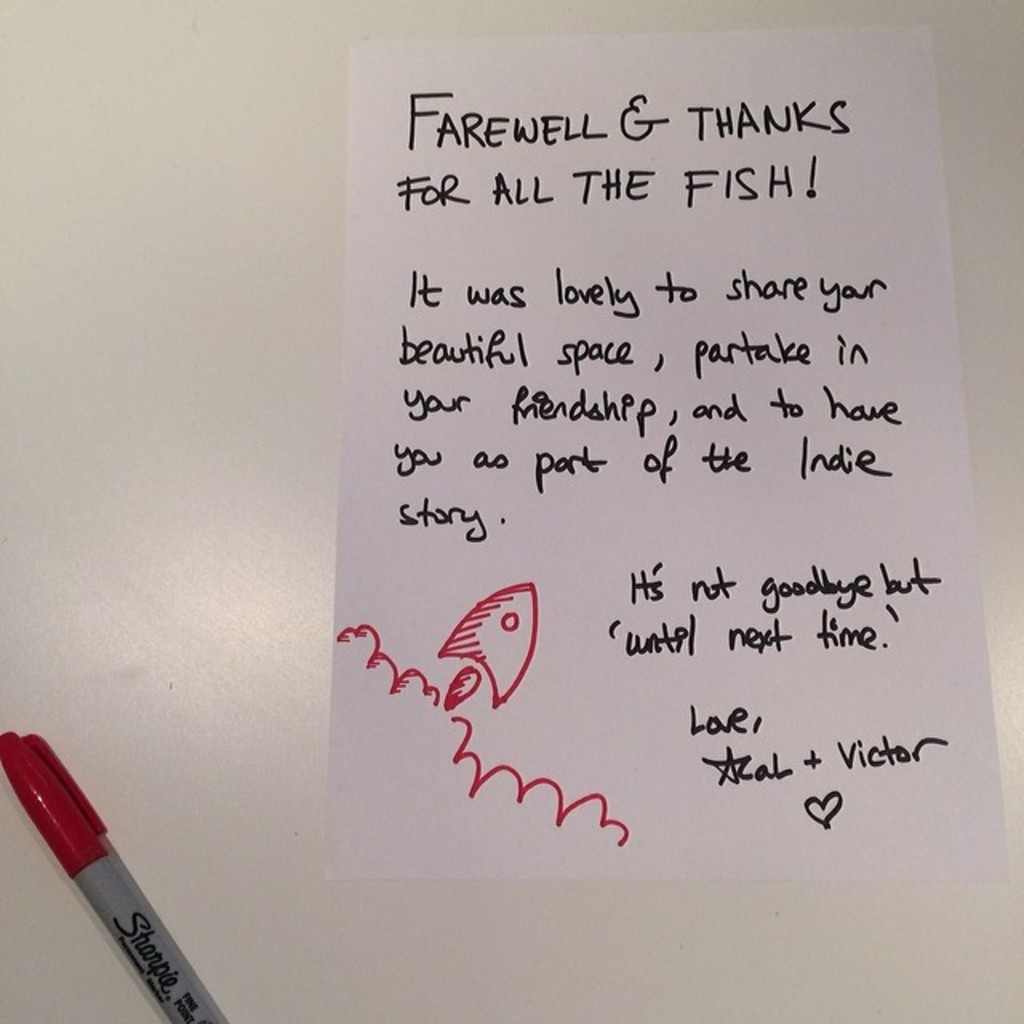 FAREWELL & THANKS
FOR ALL THE FISH!
It was lovely to share your
beautiful space, partake in
your friendship, and to have
you as part of the Indie
story.
It's not goodbye but
'until next time.'
Love,
+ Victor
Sharpie
Permanent Marker
FINE
POINT